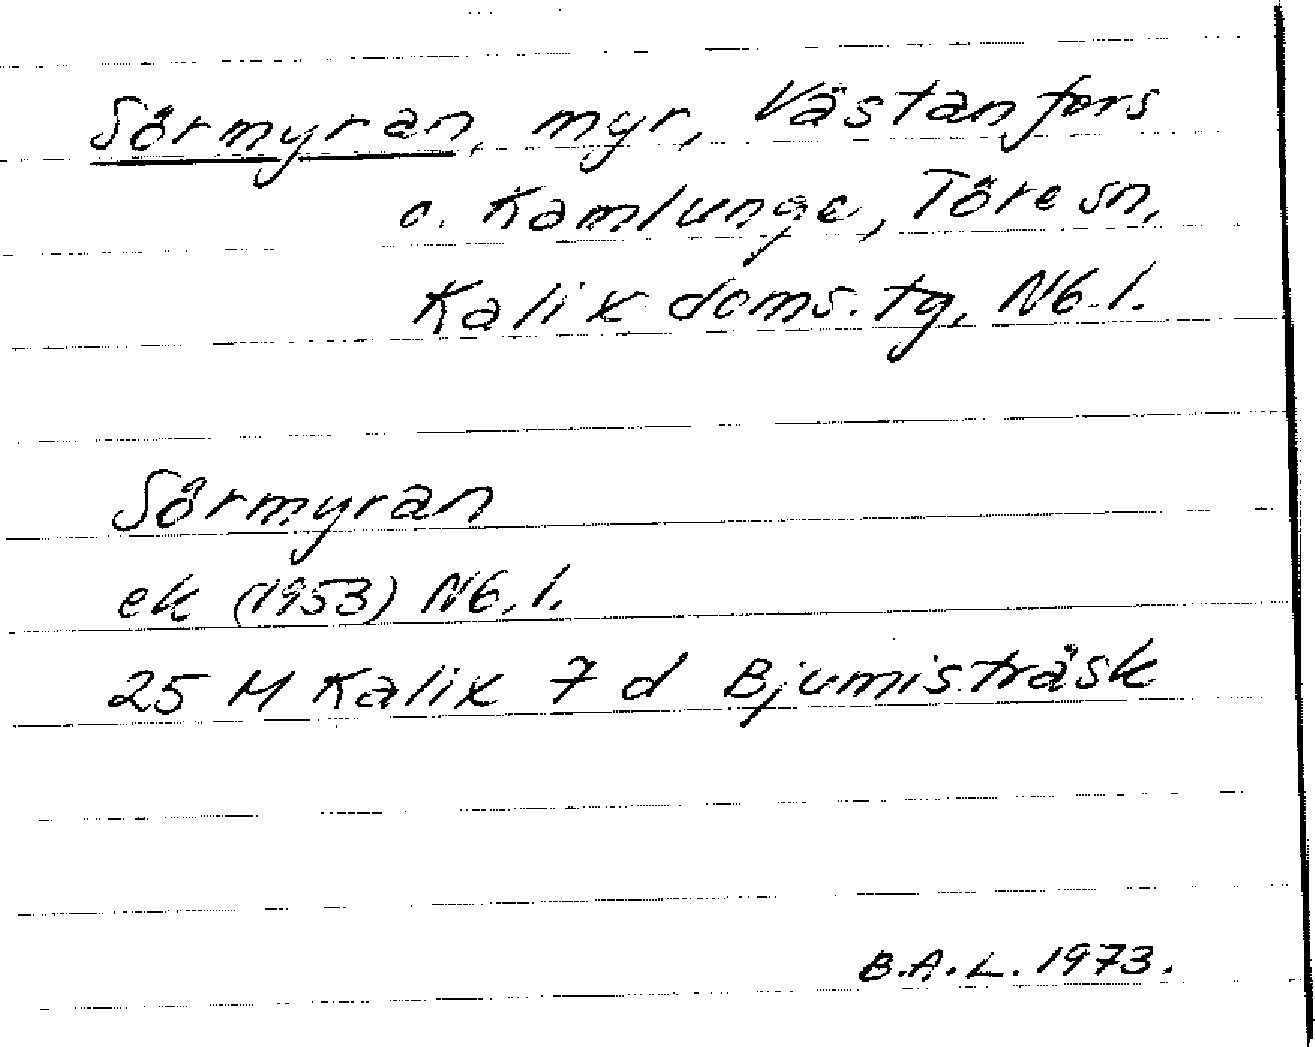 Sörmyran, myr, Västanfors
o. Kamlunge, Töre sn,
Kalix doms.tg, Nb.l.
Sörmyran
ek (1953) Nb.l.
25 M Kalix 7 d Bjumisträsk
B.A.L. 1973.